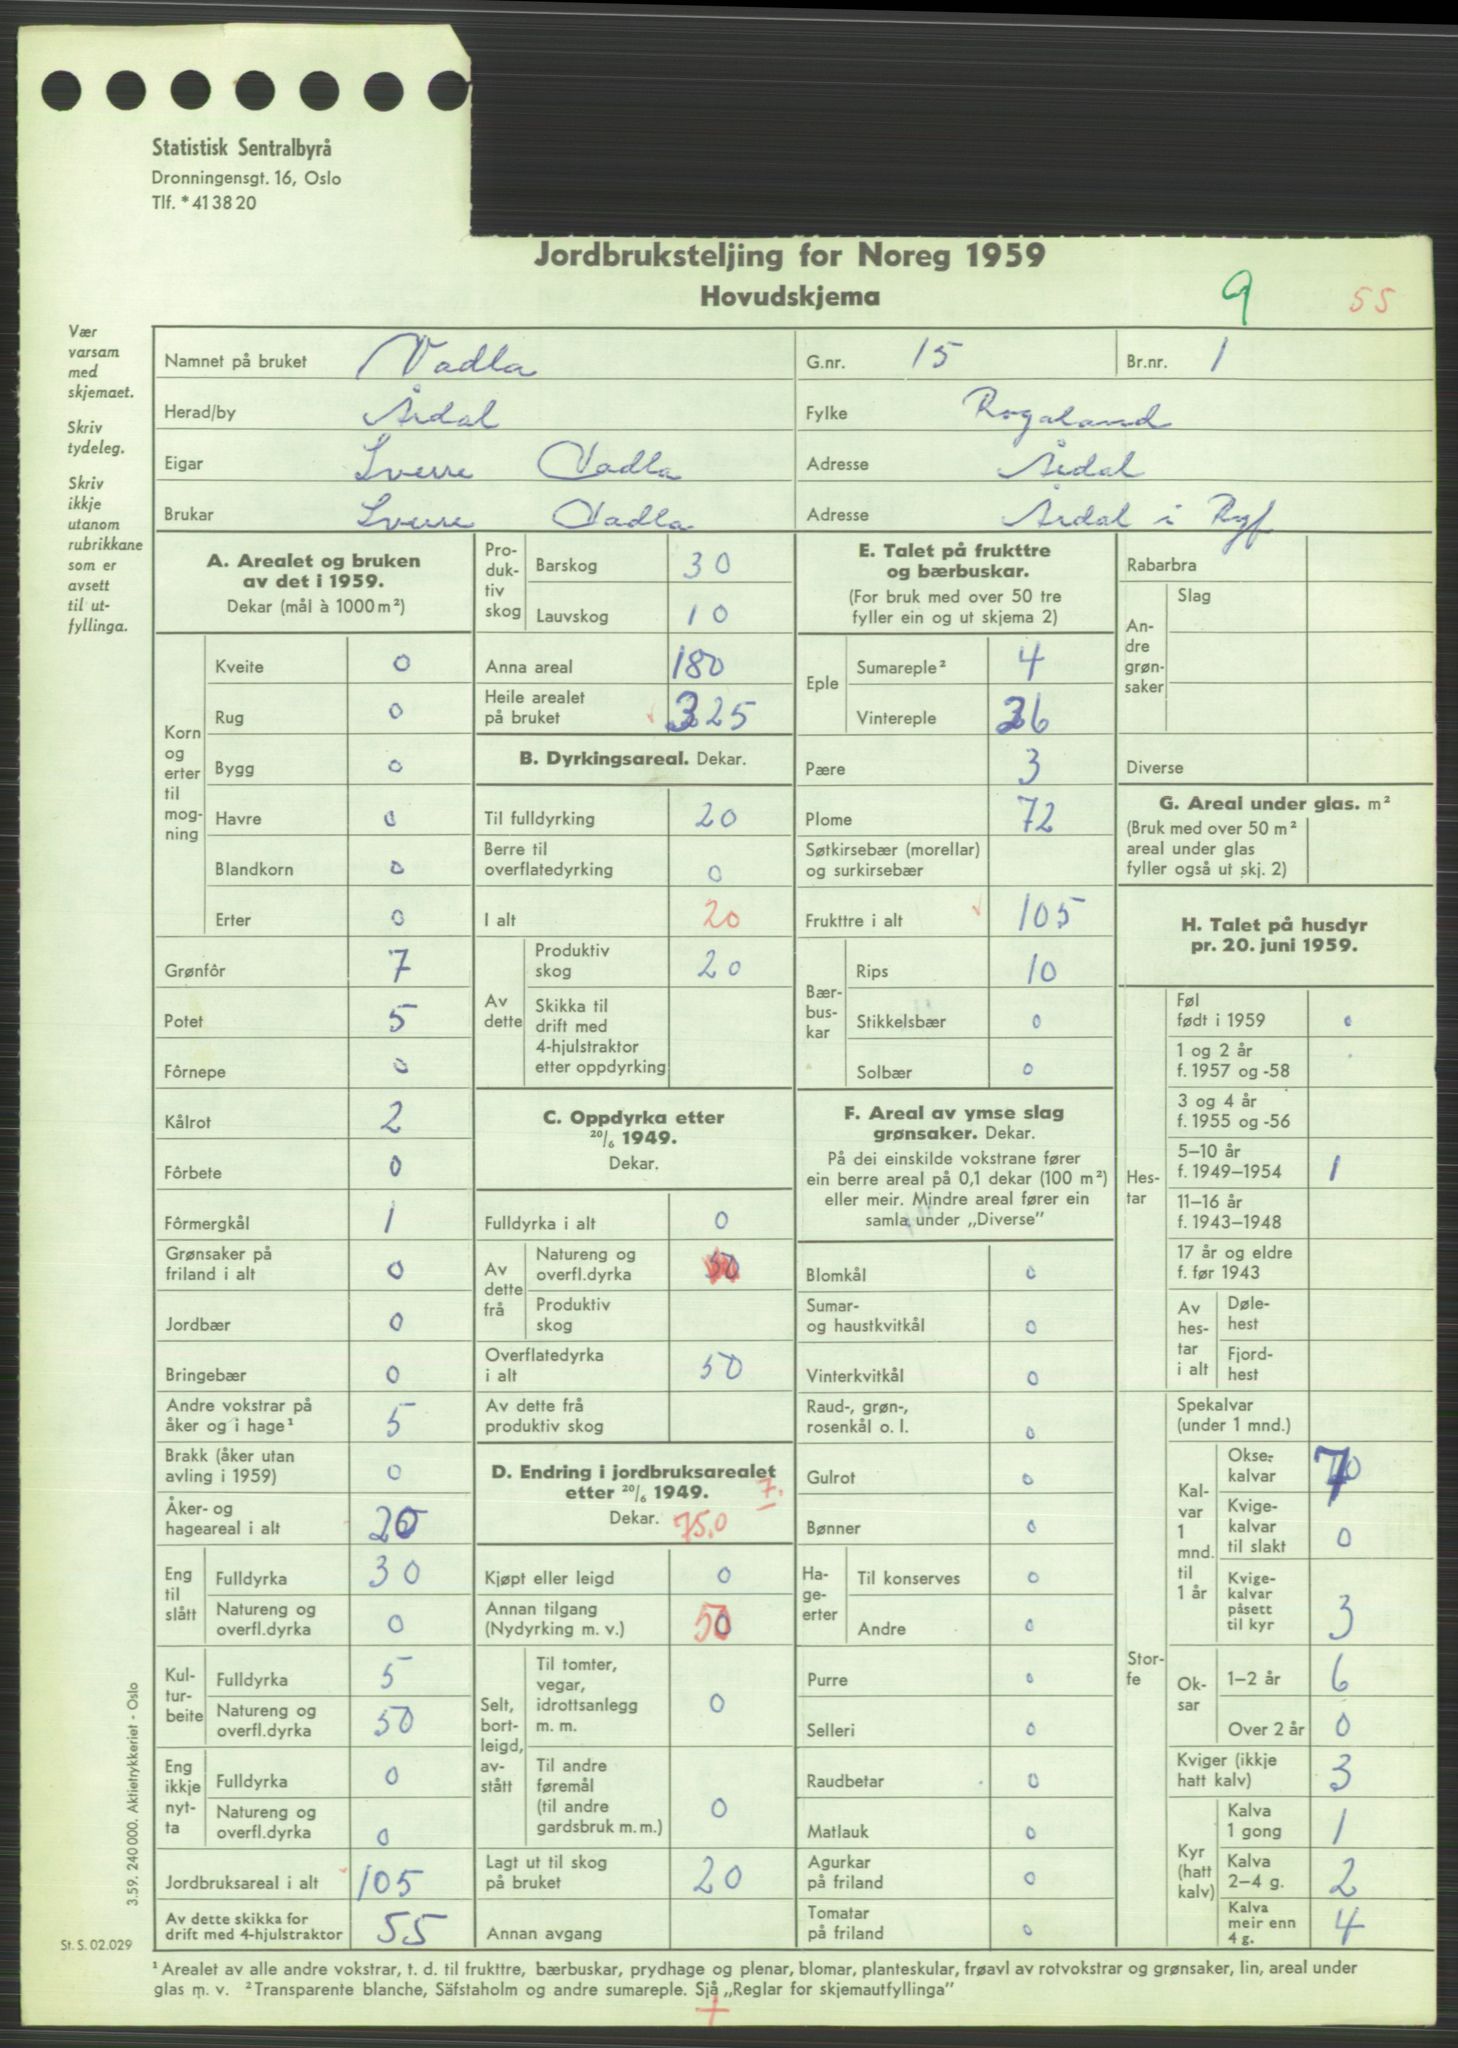 Statistisk Sentralbyrå
Dronningensgt. 16, Oslo
Tlf. * 41 38 20
Jordbruksteljing for Noreg 1959
Hovudskjema
9
55
Vær
varsam
med
skjemaet.
Skriv
tydeleg.
Skriv
ikkje
utanom
rubrikkane
som er
avsett
til ut-
fyllinga.
Namnet på bruket Vadla G.nr. 15 Br.nr. 1
Herad/by Årdal Fylke Rogaland
Eigar Sverre Vadla Adresse Årdal
Brukar Sverre Vadla Adresse Årdal i Ryf
A. Arealet og bruken
av det i 1959.
Dekar (mål à 1000 m²)
Korn
og
erter
til
mog-
ning
Kveite 0
Rug 0
Bygg 0
Havre 0
Blandkorn 0
Erter 0
Grønfôr 7
Potet 5
Fôrnepe 0
Kålrot 2
Fôrbete 0
Fôrmergkål 1
Grønsaker på
friland i alt 0
Jordbær 0
Bringebær 0
Andre vokstrar på
åker og i hage¹ 5
Brakk (åker utan
avling i 1959) 0
Åker- og
hageareal i alt 20
Eng
til
slått
Fulldyrka 30
Natureng og
overfl.dyrka 0
Kul-
tur-
beite
Fulldyrka 5
Natureng og
overfl.dyrka 50
Eng
ikkje
nyt-
ta
Fulldyrka 0
Natureng og
overfl.dyrka 0
Jordbruksareal i alt 105
Av dette skikka for
drift med 4-hjulstraktor 55
Pro-
duk-
tiv
skog
Barskog 30
Lauvskog 10
Anna areal 180
Heile arealet
på bruket 325
B. Dyrkingsareal. Dekar.
Til fulldyrking 20
Berre til
overflatedyrking 0
I alt 20
Av
dette
Produktiv
skog 20
Skikka til
drift med
4-hjulstraktor
etter oppdyrking
C. Oppdyrka etter
20/6 1949.
Dekar.
Fulldyrka i alt 0
Av
dette
frå
Natureng og
overfl.dyrka 50
Produktiv
skog
Overflatedyrka
i alt 50
Av dette frå
produktiv skog
D. Endring i jordbruksarealet
etter 20/6 1949. 7.
Dekar. 75.0
Kjøpt eller leigd 0
Annan tilgang
(Nydyrking m. v.) 50
Selt,
bort-
leigd,
av-
stått
Til tomter,
vegar,
idrottsanlegg
m. m. 0
Til andre
føremål
(til andre
gardsbruk m. m.) 0
Lagt ut til skog
på bruket 20
Annan avgang
E. Talet på frukttre
og bærbuskar.
(For bruk med over 50 tre
fyller ein og ut skjema 2)
Eple
Sumareple² 4
Vintereple 26
Pære 3
Plome 72
Søtkirsebær (morellar)
og surkirsebær
Frukttre i alt 105
Bær-
bus-
kar
Rips 10
Stikkelsbær 0
Solbær 0
F. Areal av ymse slag
grønsaker. Dekar.
På dei einskilde vokstrane fører
ein berre areal på 0,1 dekar (100 m²)
eller meir. Mindre areal fører ein
samla under „Diverse”
Blomkål 0
Sumar-
og haustkvitkål 0
Vinterkvitkål 0
Raud-, grøn-,
rosenkål o. l. 0
Gulrot 0
Bønner 0
Ha-
ge-
erter
Til konserves 0
Andre 0
Purre 0
Selleri 0
Raudbetar 0
Matlauk 0
Agurkar
på friland 0
Tomatar
på friland 0
Rabarbra
An-
dre
grøn-
saker
Slag
Diverse
G. Areal under glas. m²
(Bruk med over 50 m²
areal under glas
fyller også ut skj. 2)
H. Talet på husdyr
pr. 20. juni 1959.
Hes-
tar
Føl
født i 1959 0
1 og 2 år
f. 1957 og -58
3 og 4 år
f. 1955 og -56
5–10 år
f. 1949–1954 1
11–16 år
f. 1943–1948
17 år og eldre
f. før 1943
Av
hes-
tar
i alt
Døle-
hest
Fjord-
hest
Stor-
fe
Spekalvar
(under 1 mnd.)
Kal-
var
1
mnd.
til
1 år
Okse-
kalvar
Kvige-
kalvar
til slakt 0
Kvige-
kalvar
påsett
til kyr 3
Ok-
sar
1–2 år 6
Over 2 år 0
Kviger (ikkje
hatt kalv) 3
Kyr
(hatt
kalv)
Kalva
1 gong 1
Kalva
2–4 g. 2
Kalva
meir enn
4 g. 4
3.59. 240 000. Aktietrykkeriet - Oslo
St. S. 02.029
¹ Arealet av alle andre vokstrar, t. d. til frukttre, bærbuskar, prydhage og plenar, blomar, planteskular, frøavl av rotvokstrar og grønsaker, lin, areal under
glas m. v. ² Transparente blanche, Säfstaholm og andre sumareple. Sjå „Reglar for skjemautfyllinga”